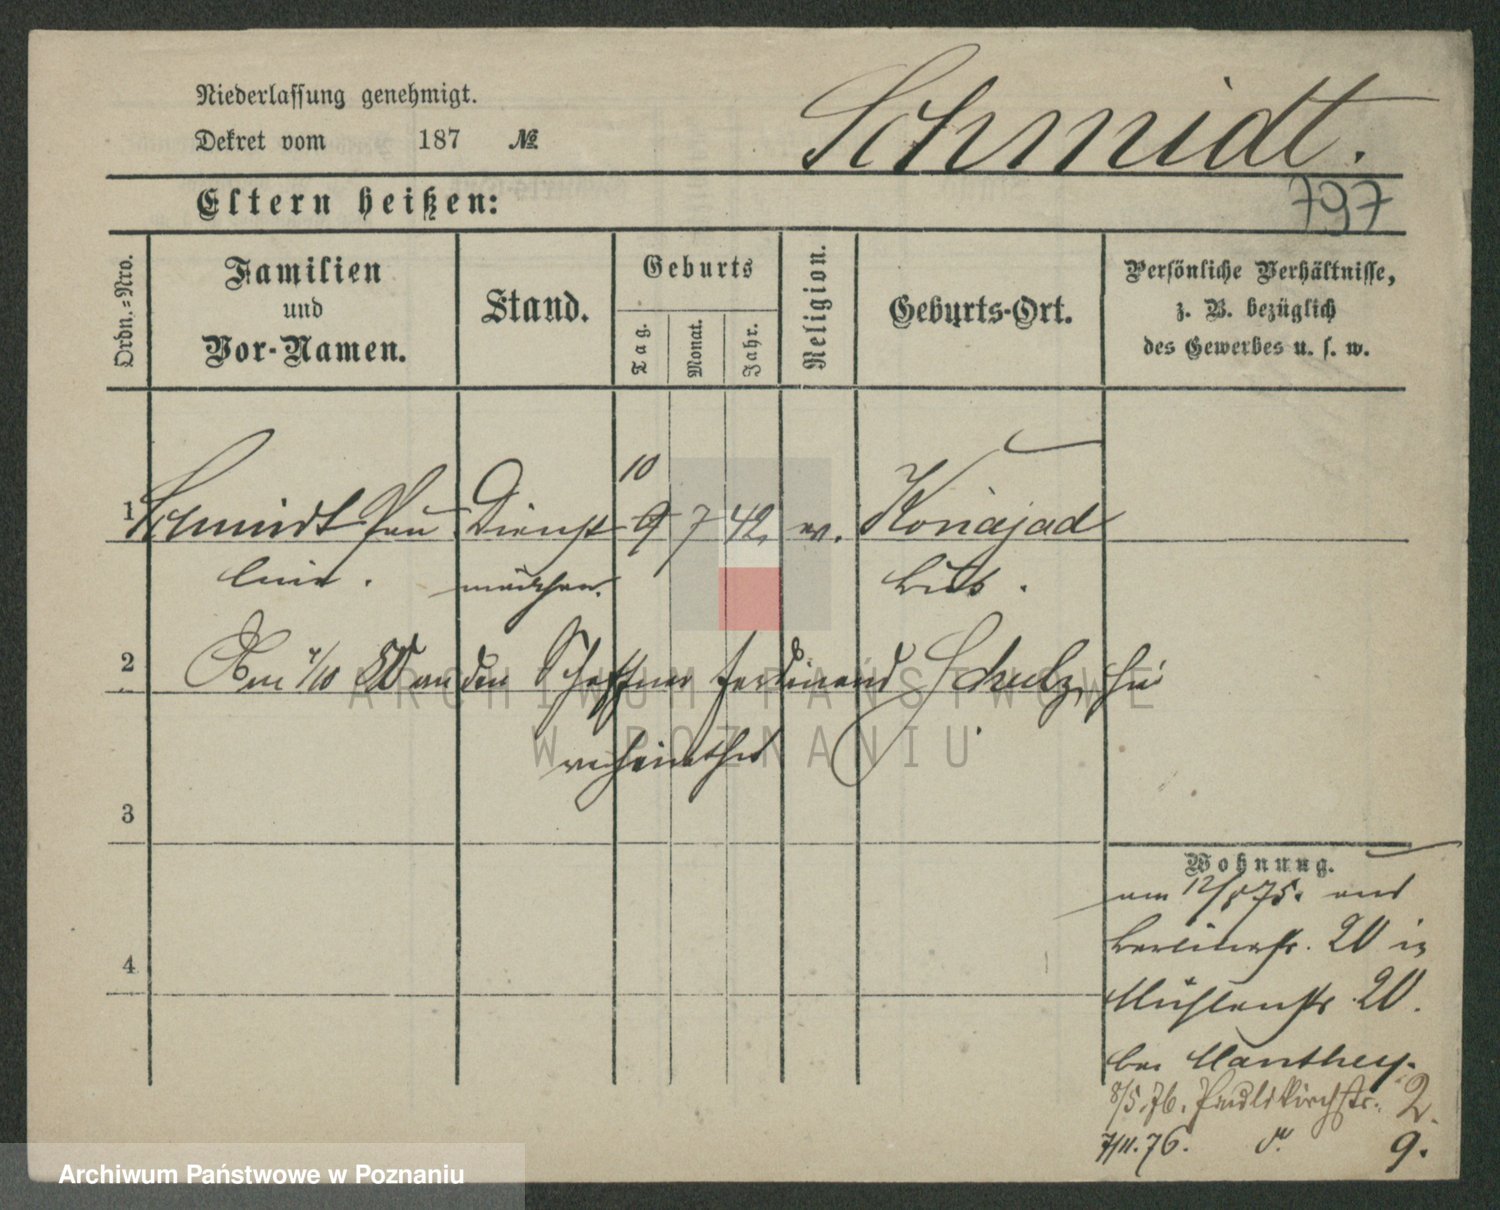 Niederlassung genehmigt.
Dekret vom 187 №
Schmidt.
Eltern heißen:
797
Ordn.=Nro.
Familien
und
Vor-Namen.
Stand.
Geburts
Tag.
Monat.
Jahr.
Religion.
Geburts-Ort.
Persönliche Verhältnisse,
z. B. bezüglich
des Gewerbes u. s. w.
10
1 Schmidt Pau Dienst 9 7 42 ev. Konojad
line. mädchen. Kreis
2 den Schaffner Ferdinand Schulz hier
verheirathet
ARCHIWUM PAŃSTWOWE
W POZNANIU
3
4
Wohnung.
am 12/ 75. aus
Berlinerstr. 20 in
Mühlenstr. 20.
bei Manthey.
8/5.76. Paulikirchstr. 2.
7/11.76. d. 9.
Archiwum Państwowe w Poznaniu